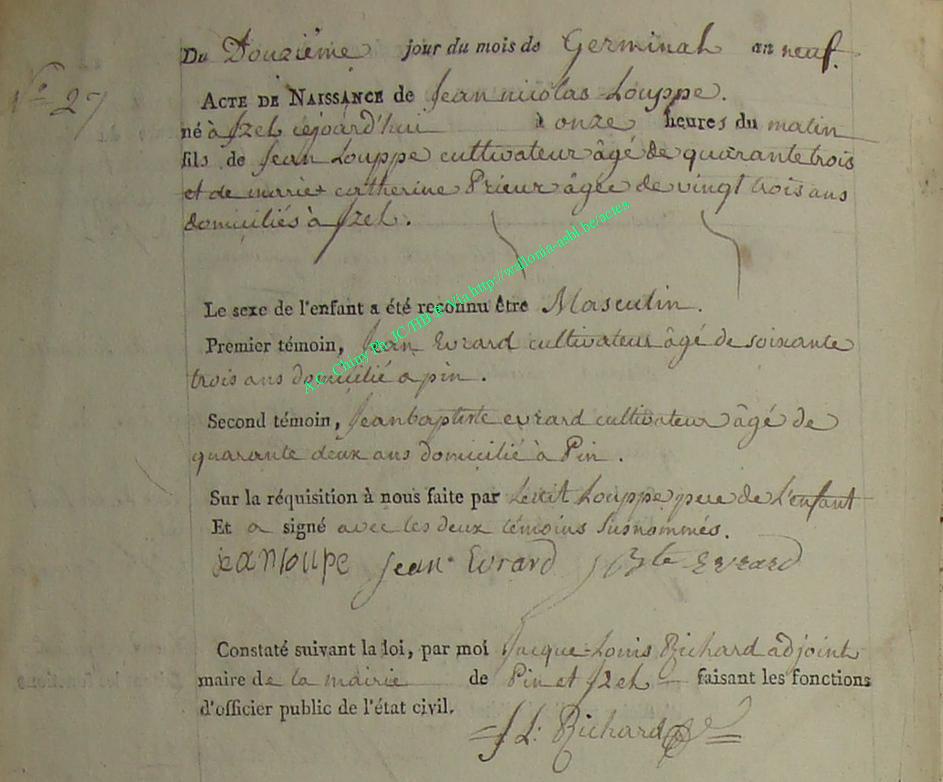 Du Douziéme jour du mois de Germinal an neuf.
N.º 27
ACTE DE NAISSANCE de Jean nicolas Louppe.
né à Izel cejourd'hui à onze heures du matin
fils de Jean Louppe cultivateur âgé de quarante trois
et de marie catherine Prieur âgée de vingt trois ans
domiciliés à Izel.
Le sexe de l'enfant a été reconnu être Masculin.
Premier témoin, Jean Evrard cultivateur âgé de soixante
trois ans domicilié a pin.
Second témoin, Jean baptiste evrard cultivateur âgé de
quarante deux ans domicilié à Pin.
Sur la réquisition à nous faite par Ledit Louppe pere de L'enfant
Et a signé avec les deux témoins susnommés.
jean loupe Jean Evrard J Bte Evrard
Constaté suivant la loi, par moi Jacque Louis Richard adjoint
maire de la mairie de Pin et Izel faisant les fonctions
d'officier public de l'état civil.
J L: Richard
A.C. Chiny Ph JC/HB Izel via http://wallonia-asbl.be/actes